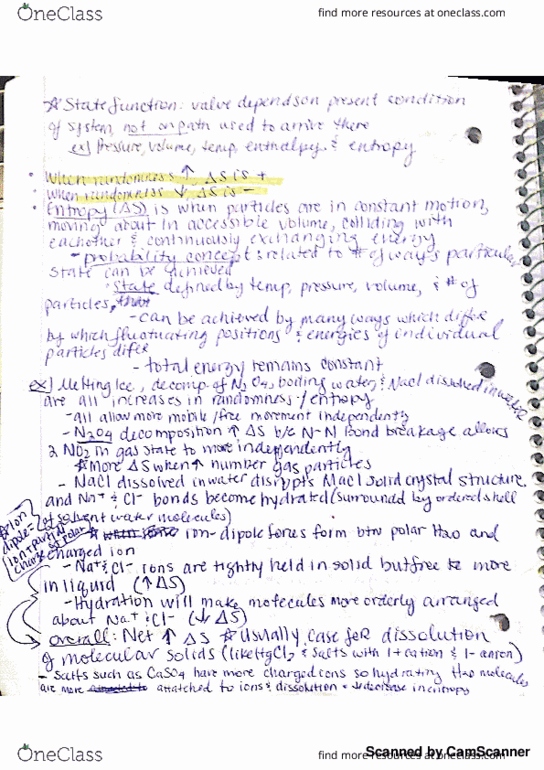 OneClass
find more resources at oneclass.com
☆ State function: value depends on present condition
of system, not on path used to arrive there
ex) Pressure, volume, temp, enthalpy, & entropy
• When randomness ↑, ΔS is +
• When randomness ↓, ΔS is −
• Entropy (ΔS) is when particles are in constant motion,
moving about in accessible volume, colliding with
eachother & continuously exchanging energy
- probability concept & related to # of ways particular
state can be achieved
· state defined by temp, pressure, volume, & # of
particles,
- can be achieved by many ways which differ
by which fluctuating positions & energies of individual
particles differ
- total energy remains constant
ex) Melting Ice, decomp. of N2O4, boiling water, & NaCl dissolved in water
are all increases in randomness / entropy
- all allow more mobile / free movement independently
- N2O4 decomposition ↑ ΔS b/c N-N Bond breakage allows
2 NO2 in gas state to move independently
☆ More ΔS when ↑ number gas particles
- NaCl dissolved in water disrupts NaCl solid crystal structure
and Na+ & Cl- bonds become hydrated (surround by ordered shell
of solvent water molecules)
☆ ion-dipole forces form btw polar H2O and
charged ion
☆ Ion
dipole =
ion + partial
charge of polar
- Na+ & Cl- ions are tightly held in solid but free to move
in liquid (↑ ΔS)
- Hydration will make molecules more orderly arranged
about Na+ & Cl- (↓ ΔS)
overall: Net ↑ ΔS ☆ Usually case for dissolution
of molecular solids (like HgCl2 & salts with 1+ cation & 1- anion)
- Salts such as CaSO4 have more charged ions so hydrating H2O molecules
are more attatched to ions & dissolution = decrease in entropy
OneClass
find more resources at oneclass.com
Scanned by CamScanner